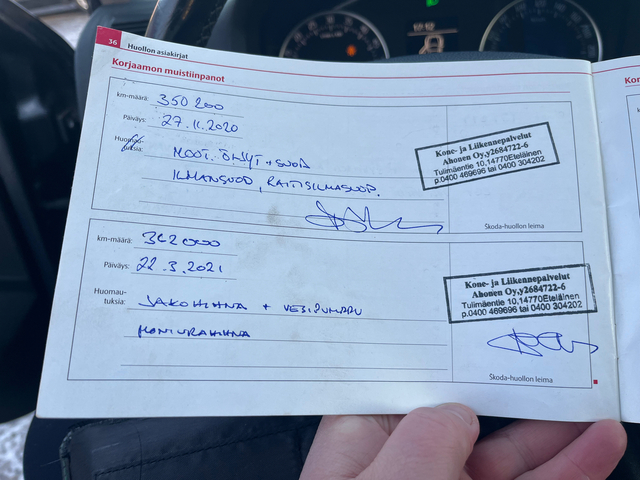 36 Huollon asiakirjat
Korjaamon muistiinpanot
km-määrä: 350 200
Päiväys: 27.11.2020
Huomau-
tuksia: MOOT. ÖLJYT + SUOD
ILMANSUOD, RAITISILMASUOD.
Kone- ja Liikennepalvelut
Ahonen Oy,y2684722-6
Tulimäentie 10,14770Eteläinen
p.0400 469696 tai 0400 304202
Škoda-huollon leima
km-määrä:
Päiväys: 22.3.2021
Huomau-
tuksia: JAKOHIHNA + VESIPUMPPU
MONIURAHIHNA
Kone- ja Liikennepalvelut
Ahonen Oy,y2684722-6
Tulimäentie 10,14770Eteläinen
p.0400 469696 tai 0400 304202
Škoda-huollon leima
Kor
km